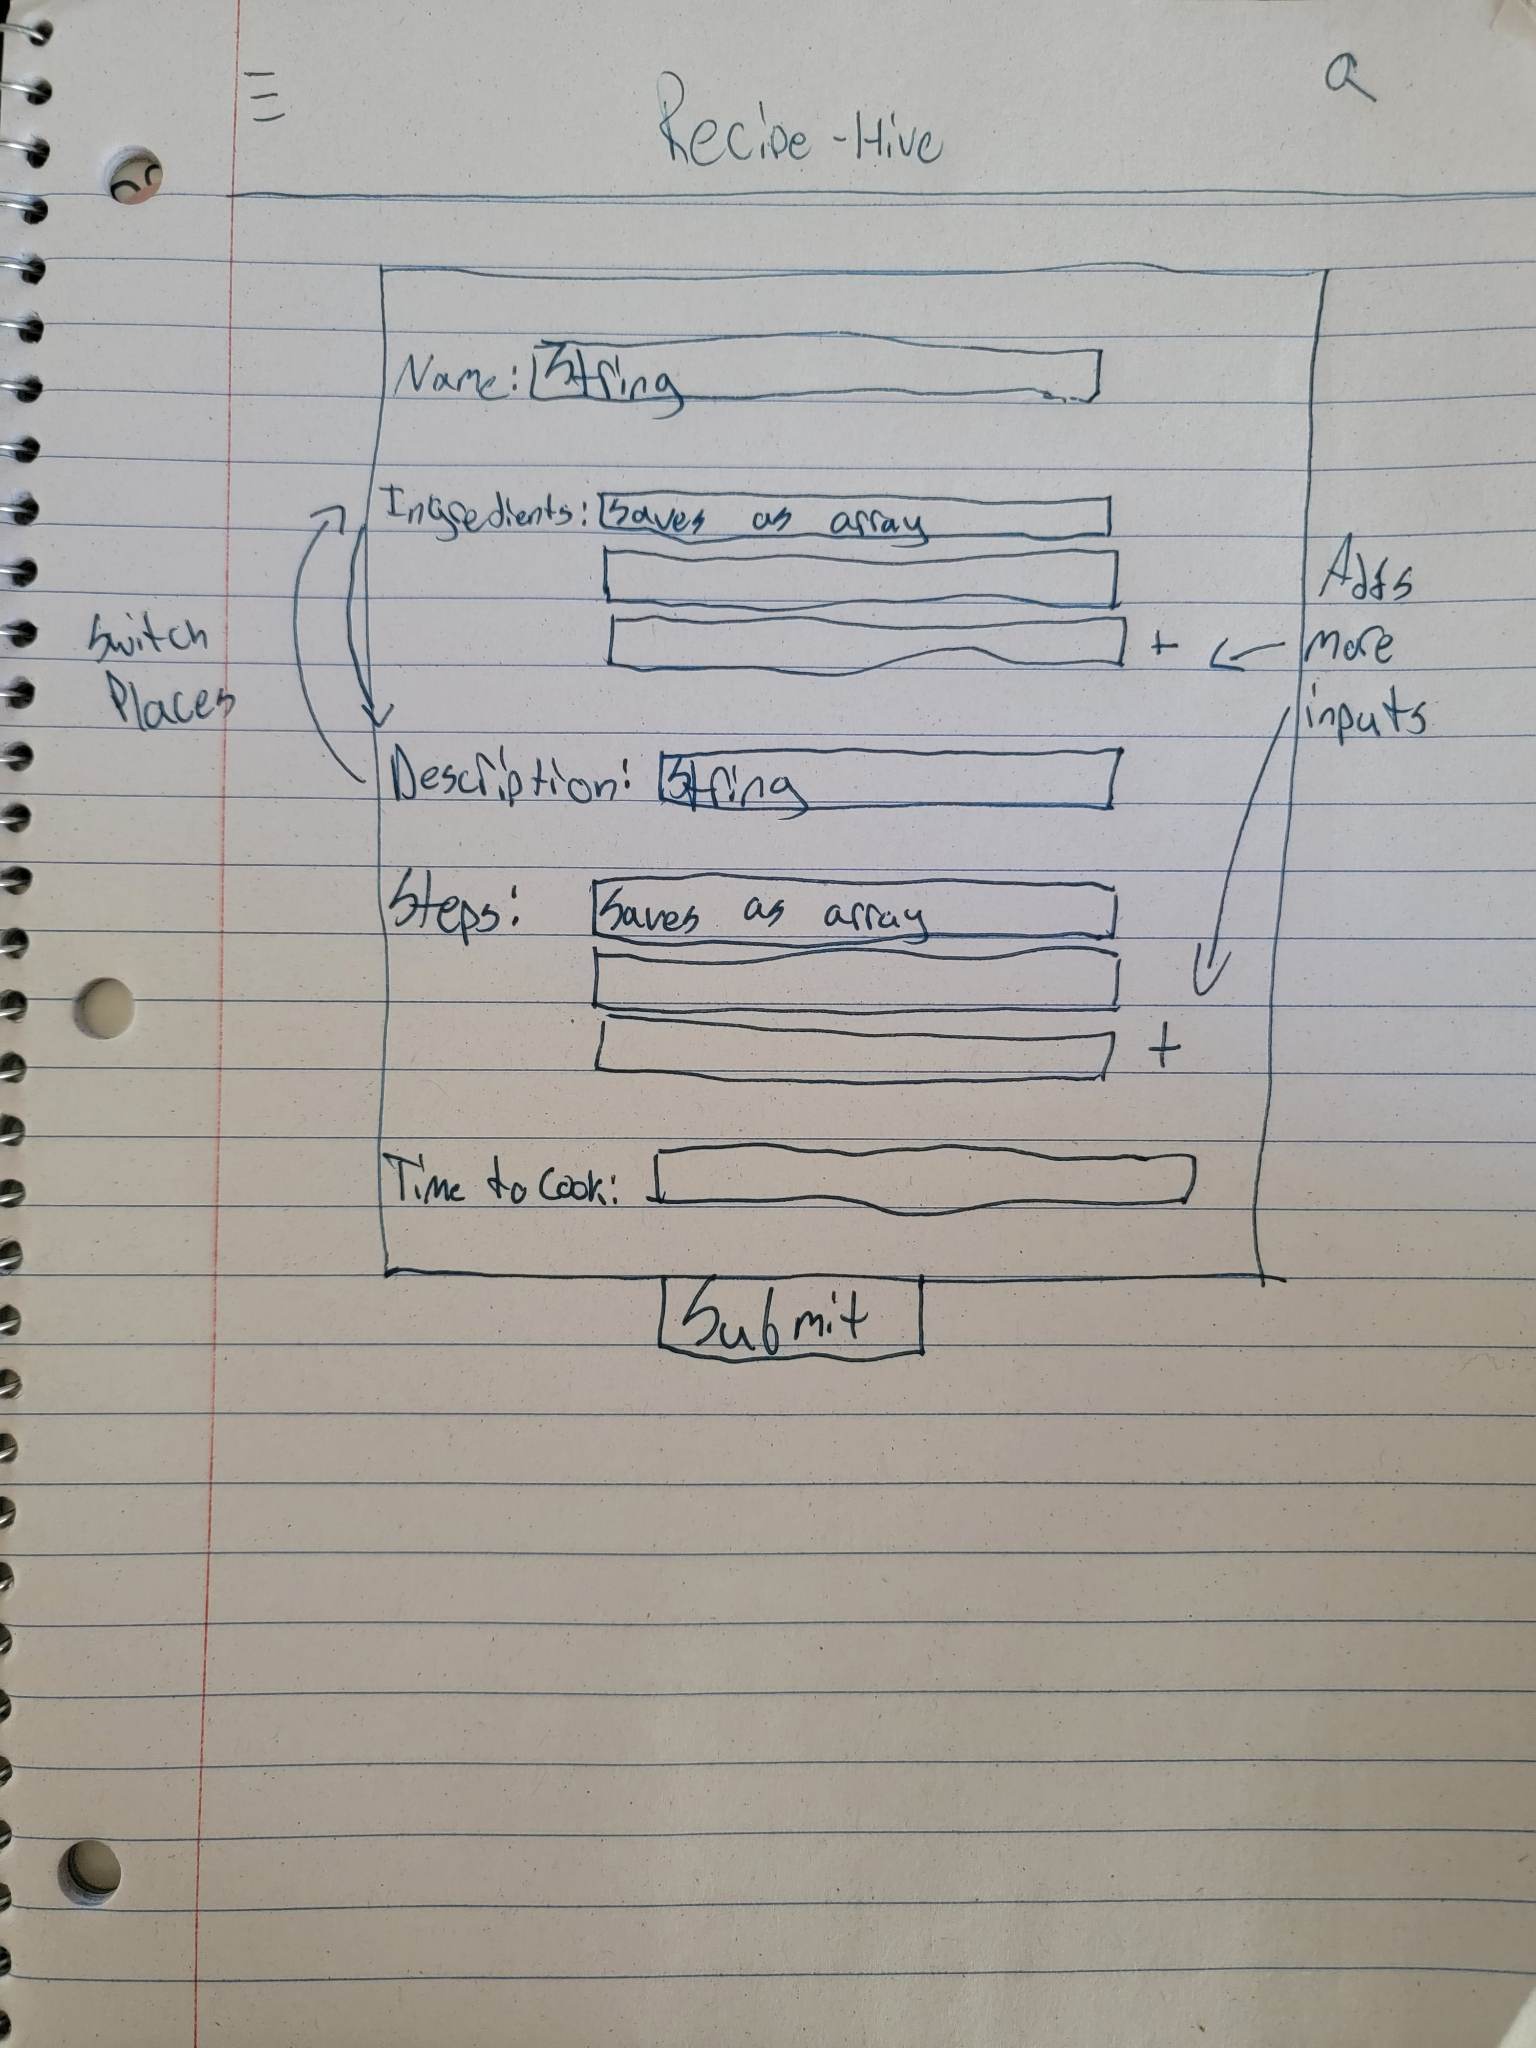 Recipe-Hive
Name: String
Ingredients: Saves as array
+
Adds
more
inputs
Switch
Places
Description: String
Steps: Saves as array
+
Time to Cook:
Submit